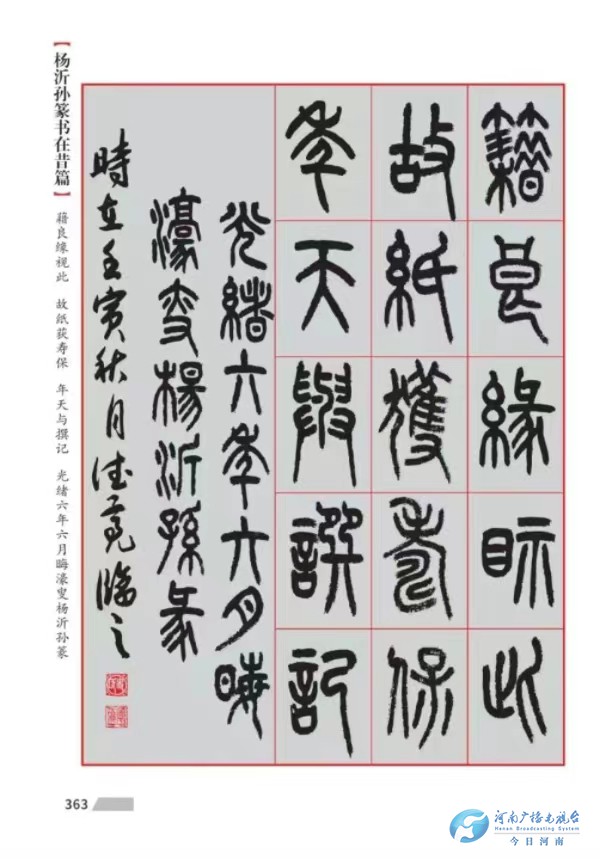 【杨沂孙篆书在昔篇】
藉良缘视此 故纸获寿保 年天与撰记 光绪六年六月晦濠叟杨沂孙篆
籍良緣眡此
故紙獲壽保
年天與譔記
光緒六年六月晦
濠叟楊沂孫篆
時在壬寅秋月德亮臨之
363
河南广播电视台
Henan Broadcasting System
今日河南